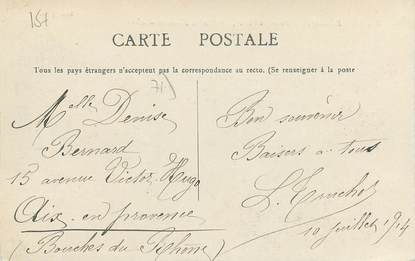 157
CARTE POSTALE
Tous les pays étrangers n'acceptent pas la correspondance au recto. (Se renseigner à la poste
71)
Melle Denise
Bernard
15 avenue Victor Hugo
Aix en provence
(Bouches du Rhône)
Bon souvenir
Baisers a tous
L.
10 juillet 1914